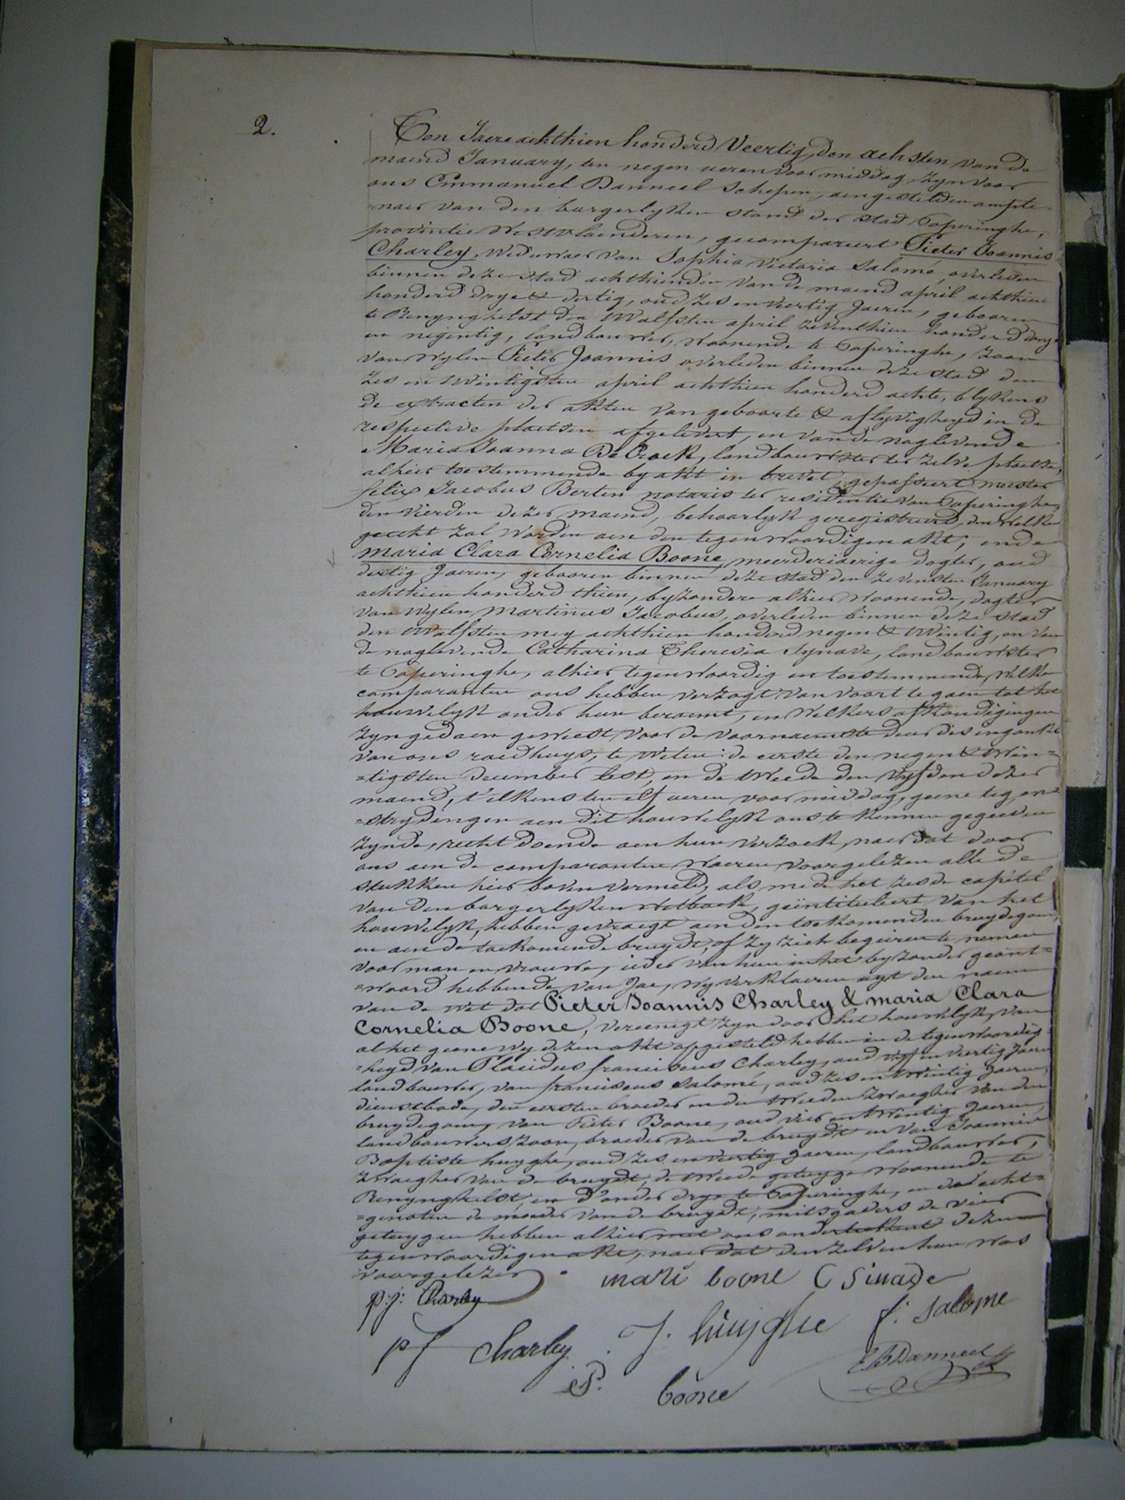 2.
Ten Jaere achthien honderd Veertig, den achsten van de
maend January, ten negen ueren voor middag, zyn voor
ons Emmanuel Danneel Schepen, aengestelden ampte-
naer van den burgerlyken stand der stad Poperinghe,
provintie Westvlaenderen, gecompareert Pieter Joannis
Charley, Weduwaer van Sophia Victoria Salomé, overleden
binnen deze stad achthienden van de maend april achthien
honderd drye & dertig, oud zes en veertig Jaeren, gebooren
te Renynghelst den Walfsten april zeventhien honderd drye
en negentig, landbouwer, woonende te Poperinghe, zoon
van wylen Pieter Joannis overleden binnen deze stad den
zes en twintigsten april achthien honderd achte, blykens
de extracten der akten van geboorte & aflyvigheyd in de
respective plaetsen afgelevert, en van de naglevende
Maria Joanna De Crock, landbouwster ter zelve plaetse,
alhier toestemmende by akt in brevet, gepasseert meester
felix Jacobus Berten notaris ter residentie van Poperinghe
den vierden dezer maend, behoorlyk geregistreerd, den welken
gehecht zal worden aen den tegenwoordigen akt; ende
Maria Clara Cornelia Boone, meerderjarige dogter, oud
dertig Jaeren, gebooren binnen deze stad den zevensten January
achthien honderd thien, byzondere alhier woonende, dogter
van wylen Martinus Jacobus, overleden binnen deze stad
den Walfsten mey achthien honderd negen & twintig, en van
de naglevende Catharina Theresia Synave, landbouwster
te Poperinghe, alhier tegenwoordig en toestemmende, welke
comparanten ons hebben verzogt van voort te gaen tot het
houwelyk onder hun beraemt, en welkers afkondigingen
zyn gedaen geweest voor de voornaemste deur des ingangs
van ons raedhuys, te weten: de eerste den negen & twin-
-tigsten december lest, en de tweede den vyfden dezer
maend, telkens ten elf ueren voor middag, geene tegen-
-strydingen aen dit houwelyk ons te kennen gegeeven
zynde, recht doende aen hun verzoek, naer dat door
ons aen de comparanten waeren voorgelezen alle de
stukken hier boven vermeld, als mede het zesde capitel
van den burgerlyken wetboek, geintituleert van het
houwelyk, hebben gevraegt aen den toekomenden bruydegom,
en aen de toekomende bruydt, of zy zich begeiren te nemen
voor man en vrouwe, ieder van hun in het byzonder geant-
-woord hebbende van Jae, wy verklaeren uyt den naem
van de wet dat Pieter Joannis Charley & maria Clara
Cornelia Boone, vereenigt zyn door het houwelyk, van
al het geene wy dezen akt opgesteld hebben in de tegenwoordig-
-heyd van Placidus franciscus Charley, oud vyf en veertig Jaeren
landbouwer, van franciscus Salomé, oud zes en twintig Jaeren,
dienstbode, den eersten broeder en den tweeden zwaegher van den
bruydegom, van Pieter Boone, oud vier en twintig Jaeren,
landbouwers zoon, broeder van de bruydt en van Joannis
Baptiste huyghe, oud zes en veertig Jaeren, landbouwer,
zwaegher van de bruydt, de tweede getuyge woonende te
Renynghelst, en d'ander drye te Poperinghe, en de echt-
-genoten de moeder van de bruydt, mitsgaders de vier
getuygen hebben alhier met ons onderteekent dezen
tegenwoordigen akt, naer dat den zelven hun was
voorgelezen.
mari boone C Sinave
p.j. Charley
pf Charley J. huijghe f. Salome
P. boone E B Danneel